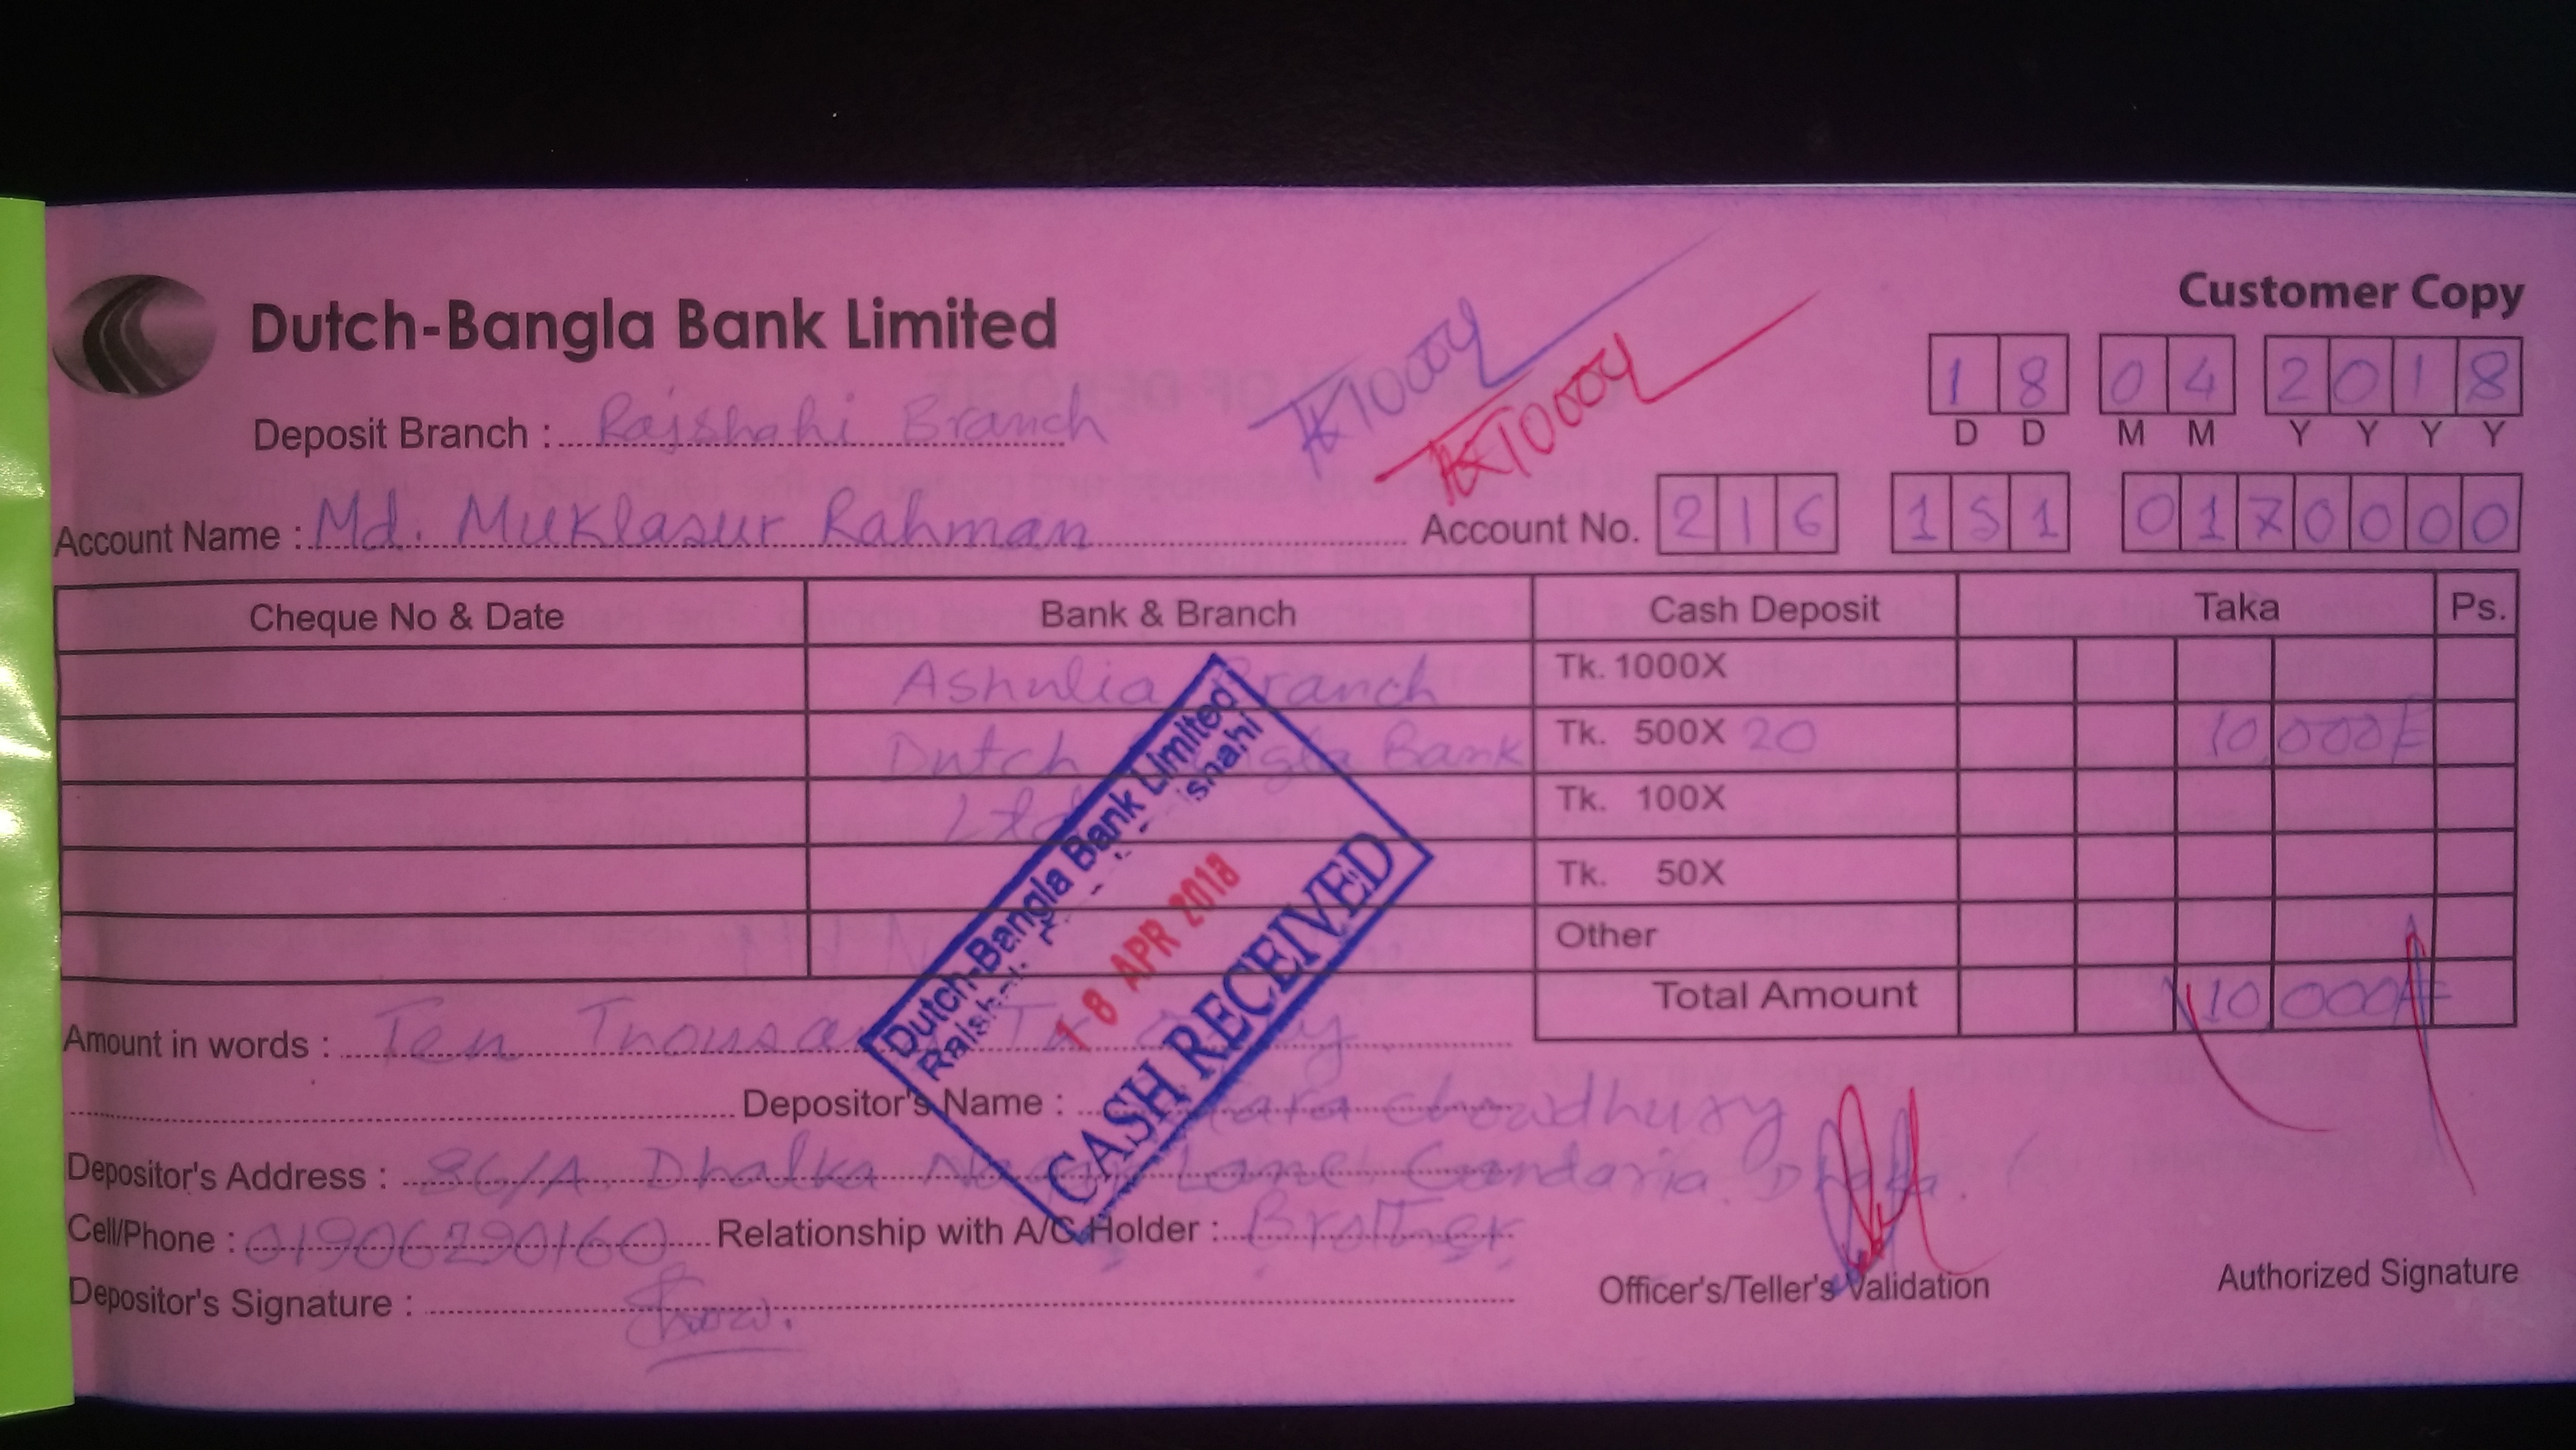 Customer Copy
Dutch-Bangla Bank Limited
18 04 2018
D D M M Y Y Y Y
Deposit Branch : Rajshahi Branch
Account Name : Md. Muklasur Rahman Account No. 216 151 0170000
Cheque No & Date Bank & Branch Cash Deposit Taka Ps.
Ashulia Branch Tk. 1000X
Dutch Bangla Bank Tk. 500X 20 10,000/=
Ltd Tk. 100X
Tk. 50X
Other
Total Amount 10,000/=
Dutch-Bangla Bank Limited
18 APR 2018
CASH RECEIVED
Amount in words : Ten Thousand
Depositor's Name : Chowdhury
Depositor's Address : 86/A, Dhalka Lane, Gandaria. Dhaka.
Cell/Phone : 01906290160 Relationship with A/C Holder : Brother
Depositor's Signature :
Officer's/Teller's Validation Authorized Signature